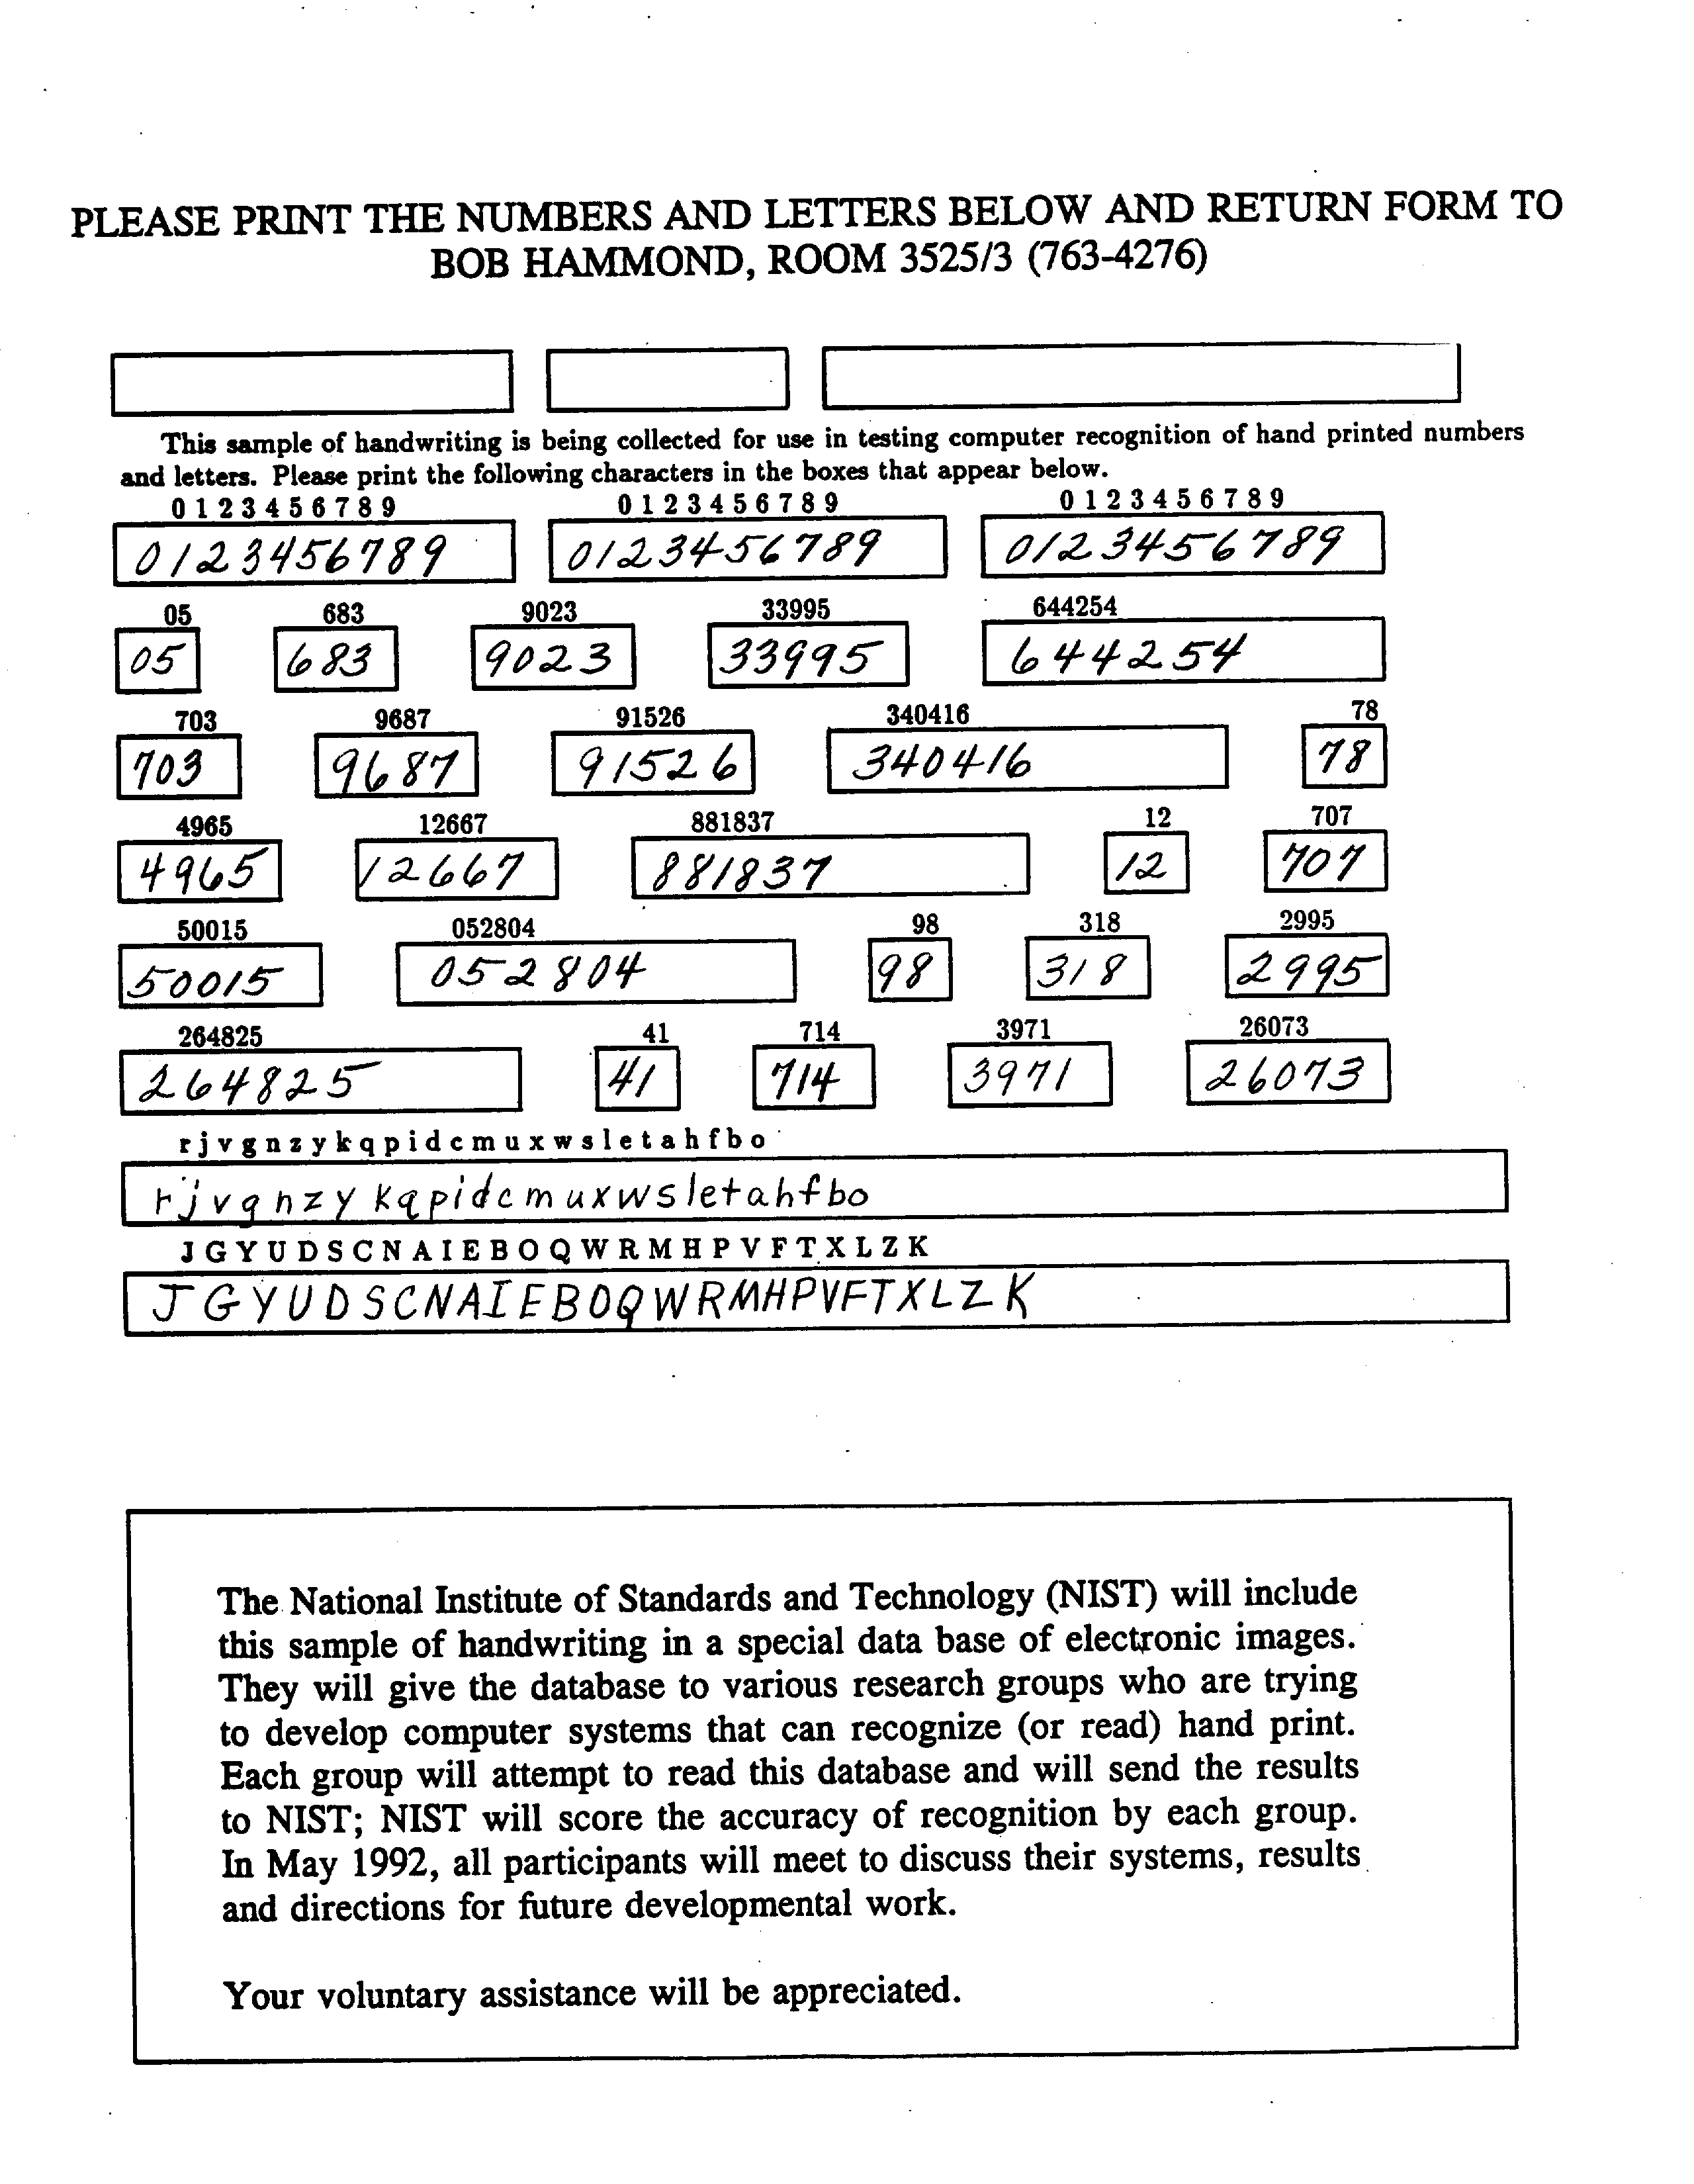 PLEASE PRINT THE NUMBERS AND LETTERS BELOW AND RETURN FORM TO
BOB HAMMOND, ROOM 3525/3 (763-4276)
This sample of handwriting is being collected for use in testing computer recognition of hand printed numbers
and letters. Please print the following characters in the boxes that appear below.
0 1 2 3 4 5 6 7 8 9 0 1 2 3 4 5 6 7 8 9 0 1 2 3 4 5 6 7 8 9
0123456789 0123456789 0123456789
05 683 9023 33995 644254
05 683 9023 33995 644254
703 9687 91526 340416 78
703 9687 91526 340416 78
4965 12667 881837 12 707
4965 12667 881837 12 707
50015 052804 98 318 2995
50015 052804 98 318 2995
264825 41 714 3971 26073
264825 41 714 3971 26073
r j v g n z y k q p i d c m u x w s l e t a h f b o
rjvgnzykqpidcmuxwsletahfbo
J G Y U D S C N A I E B O Q W R M H P V F T X L Z K
JGYUDSCNAIEBOQWRMHPVFTXLZK
The National Institute of Standards and Technology (NIST) will include
this sample of handwriting in a special data base of electronic images.
They will give the database to various research groups who are trying
to develop computer systems that can recognize (or read) hand print.
Each group will attempt to read this database and will send the results
to NIST; NIST will score the accuracy of recognition by each group.
In May 1992, all participants will meet to discuss their systems, results
and directions for future developmental work.
Your voluntary assistance will be appreciated.